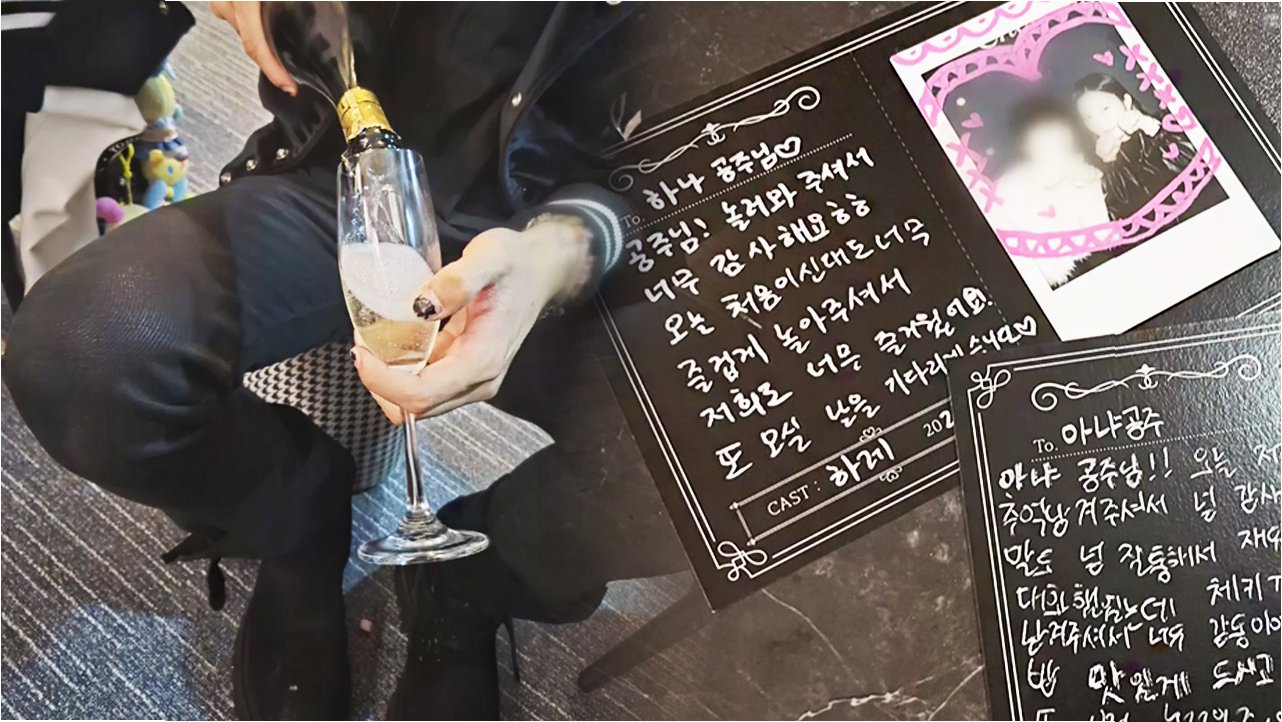 To. 하나 공주님♡
공주님! 놀러와 주셔서
너무 감사해요ㅎㅎ
오늘 처음이신대도 너무
즐겁게 놀아주셔서
저희도 너무 즐거웠어요!
또 오실 날을 기다리게습니다♡
CAST : 하레
202
To. 아냐공주
아냐 공주님!! 오늘
주셔서 넘 감사
말도 넘 잘통해서 재
체키
남겨주셔서 너무 감동이
밥 맛있게 드시고